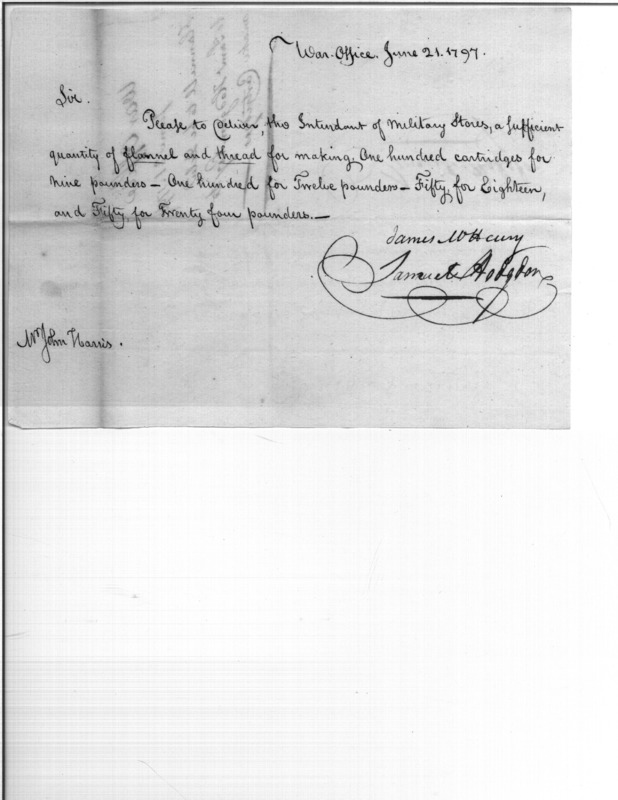 War-Office. June 21. 1797.
Sir.
Please to deliver, the Intendant of Military Stores, a sufficient
quantity of flannel and thread for making. One hundred cartridges for
Nine pounders — One hundred for Twelve pounders — Fifty, for Eighteen,
and Fifty for Twenty four pounders. —
James McHenry
Samuel Hodgdon
Mr John Harris.